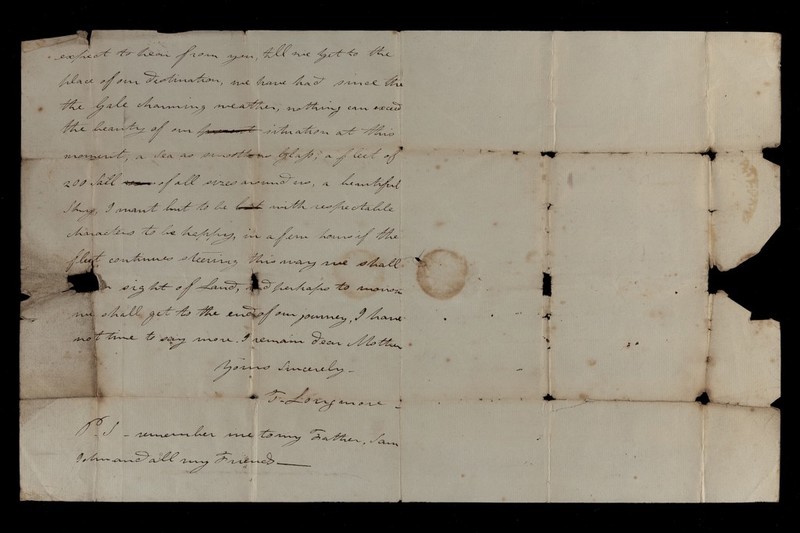 expect to hear from you, till we get to the
place of our Destination, we have had since the
the Gale charming weather, nothing can exceed
the beauty of our situation at this
moment, a Sea as smooth as Glass, a fleet of
200 Sail of all sizes around us, a beautiful
Ship, I want but to be with respectable
characters to be happy, in a few hours if the
fleet continues steering this way we shall
sight of Land, and perhaps to morrow
we shall get to the end of our journey, I have
not time to say more. I remain Dear Mother
Yours Sincerely -
F. Longmore -
P.S - remember me to my Father, Sam
John and all my Friends —